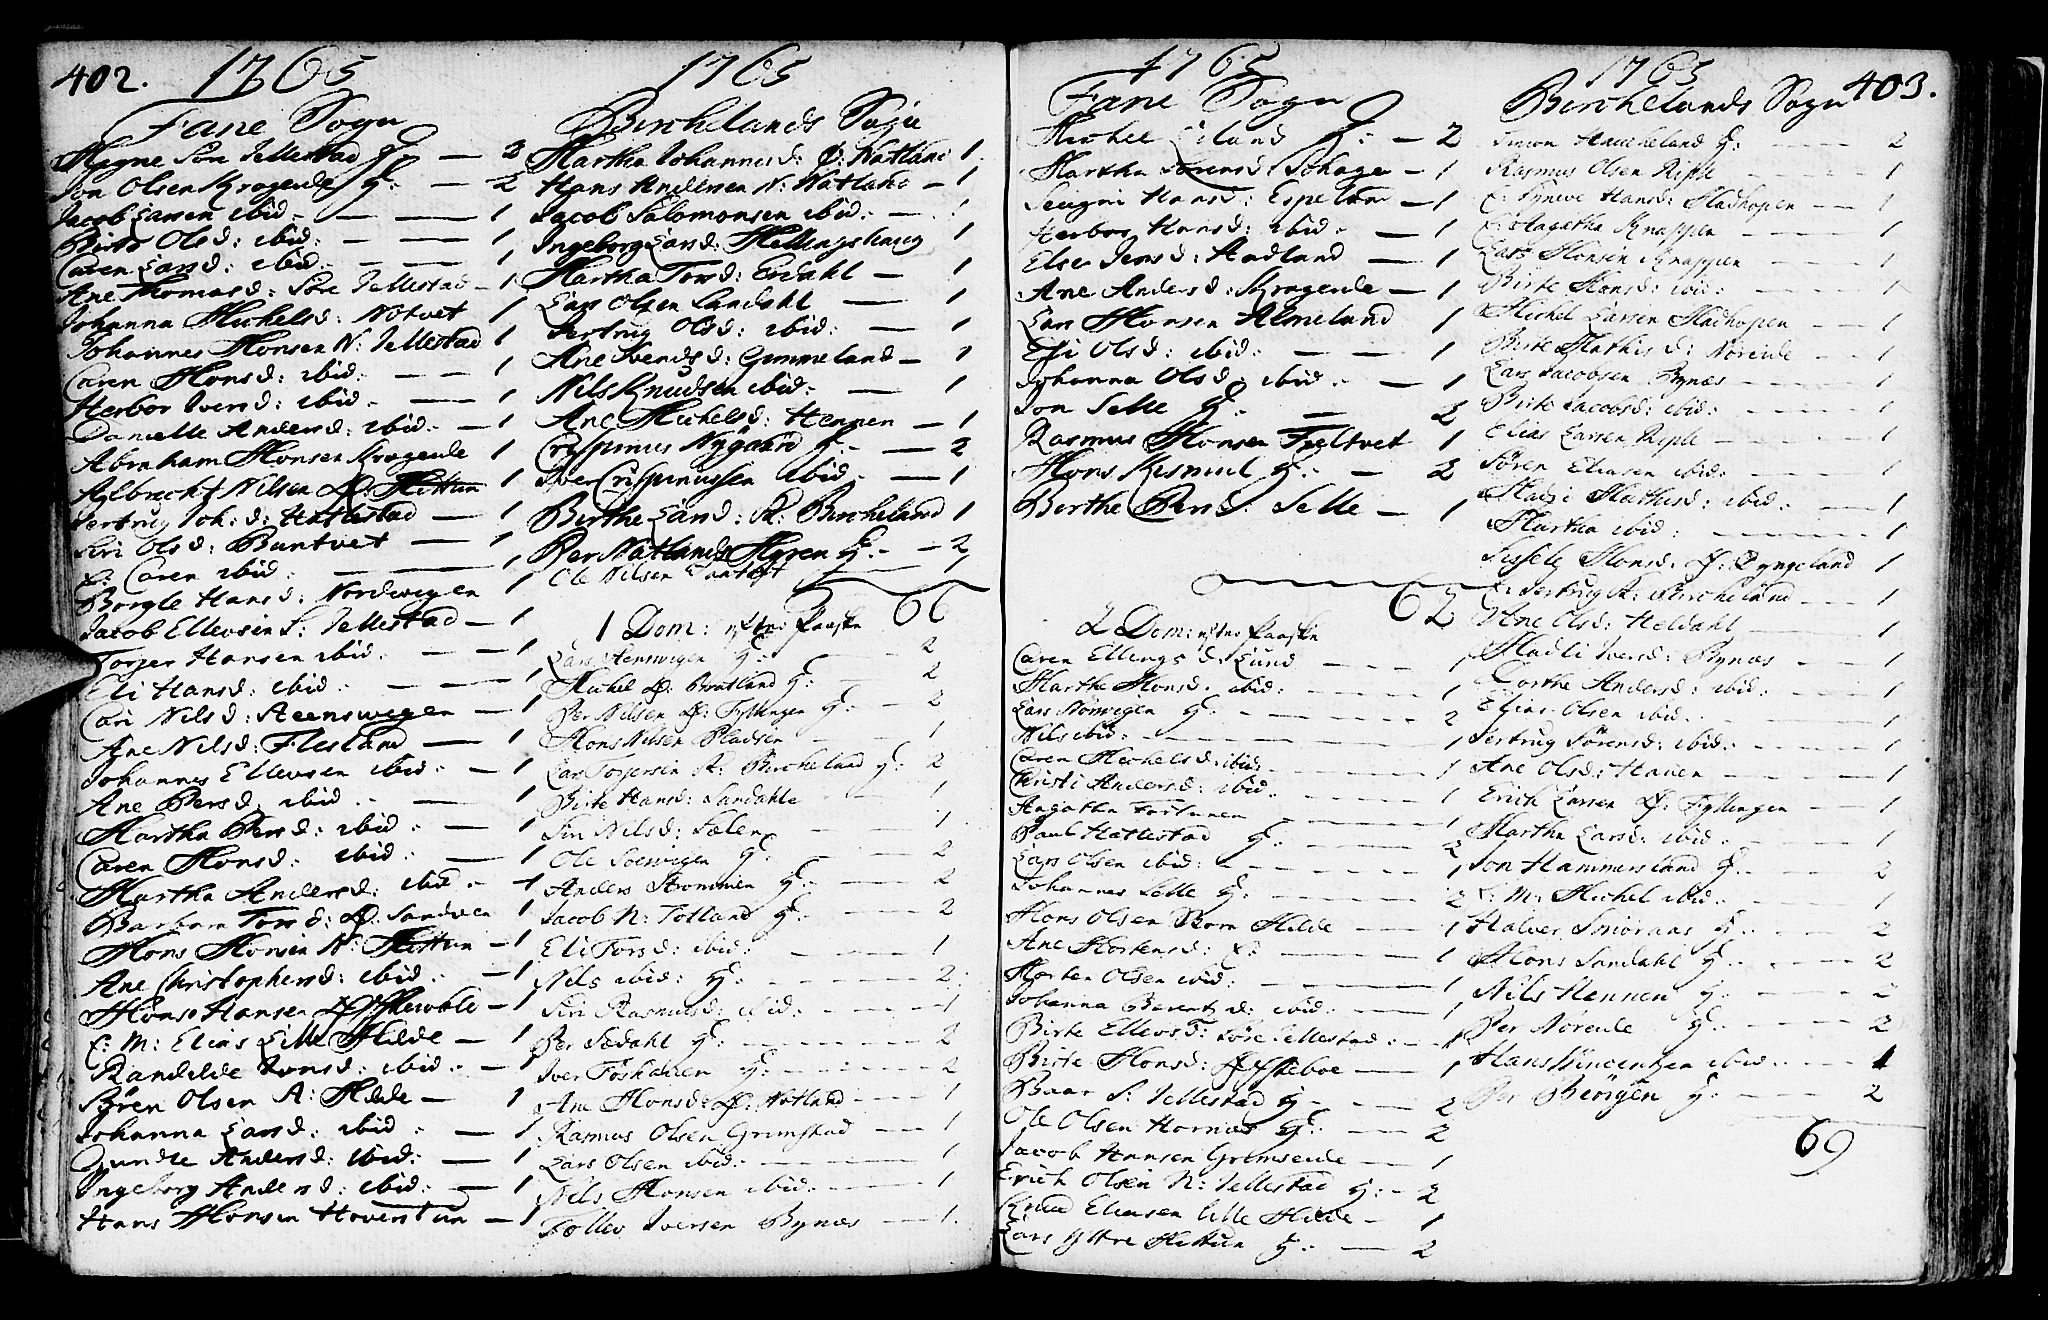 402. 1765
Fane Sogn
Magne Søre Jellestad H: — 2
Jon Olsen Krogeide H: — 2
Jacob Larsen ibid: — 1
Birte Olsd: ibid: — 1
Caren Larsd: ibid: — 1
Ane Thomasd: Søre Jellestad — 1
Johanna Michelsd: Nøtvet 1
Johannes Monsen N: Jellestad 1
Caren Monsd: ibid: — 1
Herbor Iversd: ibid: — 1
Danielle Andersd: ibid: — 1
Abraham Monsen Krogeide 1
Aylbrecht Nilsen Ø: Hittun 1
Jertrug Joh: d: Hatlestad — 1
Siri Olsd: Buntvet — 1
E: Caren ibid: — 1
Borgle Hansd: Nordwigen 1
Jacob Ellevsen S: Jellestad — 1
Torjer Hansen ibid: — 1
Eli Hansd: ibid: — 1
Cari Nilsd: Steenswegen — 1
Ane Nilsd: Flesland — 1
Johannes Ellevsen ibid: — 1
Ane Persd: ibid: — 1
Martha Persd: ibid: — 1
Caren Monsd: ibid: — 1
Martha Andersd: ibid: — 1
Barbara Torsd: Ø: Sandven 1
Mons Monsen N: Hittun — 1
Ane Christophersd: ibid: — 1
Hansen — 1
E: M: Elias Lille Milde — 1
Randilde Jonsd: ibid: — 1
Søren Olsen A: Milde — 1
Johanna Larsd: ibid: — 1
Gundle Andersd: ibid: — 1
Ingeborg Andersd: ibid: — 1
Hans Monsen Hoventun — 1
1765
Birchelands Sogn
Martha Johannesd: Ø: Natland 1
Hans Andersen N: Natland — 1
Jacob Salomonsen ibid: — 1
Ingeborg Larsd: Hellingshaug 1
Martha Torsd: Erdahl — 1
Lars Olsen Sandahl — 1
Jertrug Olsd: ibid: — 1
Ane Svendsd: Gummeland — 1
Nils Knudsen ibid: — 1
Ane Michelsd: Hennen — 1
Crispinus Nygaard H: — 2
Iver Crispinussen ibid: — 1
Birthe Larsd: St: Bircheland 1
Per Natlands Myren H: — 2
Ole Nilsen — 1
66
1 Dom: efter Paaske
Lars Steenswegen H: — 2
Michel Ø: Bratland H: — 2
Per Nilsen Ø: Fyllingen H: — 2
Mons Nilsen Pladsen — 1
Lars Torjersen St: Bircheland H: 2
Birte Hansd: Sandahle — 1
Siri Nilsd: Sælen — 1
Ole Soerwigen H: — 2
Anders Strømmen H: — 2
Jacob N: Totland H: — 2
Eli Torsd: ibid: — 1
Nils ibid: H: — 2
Siri Rasmusd: ibid: — 1
Per Sædahl H: — 2
Iver Foshauen H: — 2
Ane Monsd: Ø: Natland — 1
Rasmus Olsen Grimstad — 1
Lars Olsen ibid: — 1
Nils Monsen ibid: — 1
Follev Iversen Bynæs — 1
1765
Fane Sogn
Michel Eiland H: — 2
Martha Sørensd: Skage — 1
Seugni Hansd: Espeland — 1
Herbor Hansd: ibid: — 1
Else Jensd: Aadland — 1
Ane Andersd: Krogeide — 1
Lars Monsen Almeland 1
Eli Olsd: ibid: — 1
Johanna Olsd: ibid: — 1
Jon Selle H: — 2
Rasmus Monsen Tveltvet 1
Mons Kismul H: — 2
Berthe Persd: Selle — 1
62
2 Dom: efter Paaske
Caren Ellingsd: Lund — 1
Marthe Monsd: ibid: — 1
Lars Nørwegen H: — 2
Nils ibid: — 1
Caren Michelsd: ibid: — 1
Christi Andersd: ibid: — 1
Aagatha Fortunen — 1
Paul Hatlestad H: — 2
Lars Olsen ibid: — 1
Johannes Selle H: — 2
Mons Olsen Store Milde — 1
Ane Mortensd: E: — 1
Morten Olsen ibid: — 1
Johanna Berentzd: ibid: — 1
Birte Ellevsd: Søre Jellestad — 1
Birte Monsd: — 1
Baar S: Jellestad H: — 2
Ole Olsen Hornæs H: — 2
Jacob Hansen Grimseide — 1
Erich Olsen N: Jellestad H: — 2
Knud Eliasen Lille Milde — 1
Lars Yttre Hittun H: — 2
1765 403.
Birchelands Sogn
Simon Haucheland H: — 2
Rasmus Olsen Riple — 1
E: Synneve Hansd: Stadhopen — 1
E: Aagatha Knappen — 1
Lars Monsen Knappen — 1
Birte Monsd: ibid: — 1
Michel Larsen Stadhopen — 1
Birte Mathisd: Nøreide — 1
Lars Jacobsen Bynæs — 1
Birte Jacobsd: ibid: — 1
Elias Larsen Riple — 1
Søren Eliasen ibid: — 1
Madzi Mathisd: ibid: — 1
Martha ibid: — 1
Sissele Monsd: Ø: Tyngeland 1
E: Jertrug St: Bircheland — 1
Ane Olsd: Heldahl — 1
Madli Iversd: Bynæs — 1
Dorthe Andersd: ibid: — 1
Elias Olsen ibid: — 1
Jertrug Sørensd: ibid: — 1
Ane Olsd: Hauen — 1
Erich Larsen Ø: Fyllingen — 1
Martha Larsd: ibid: — 1
Jon Hammersland H: — 2
E: M: Michel ibid: — 1
Halvor Smøraas H: — 2
Mons Sandahl H: — 2
Nils Hennen H: — 2
Per Nøreide H: — 2
Hans Vincentzen ibid: — 1
Per Børgen H: — 2
69